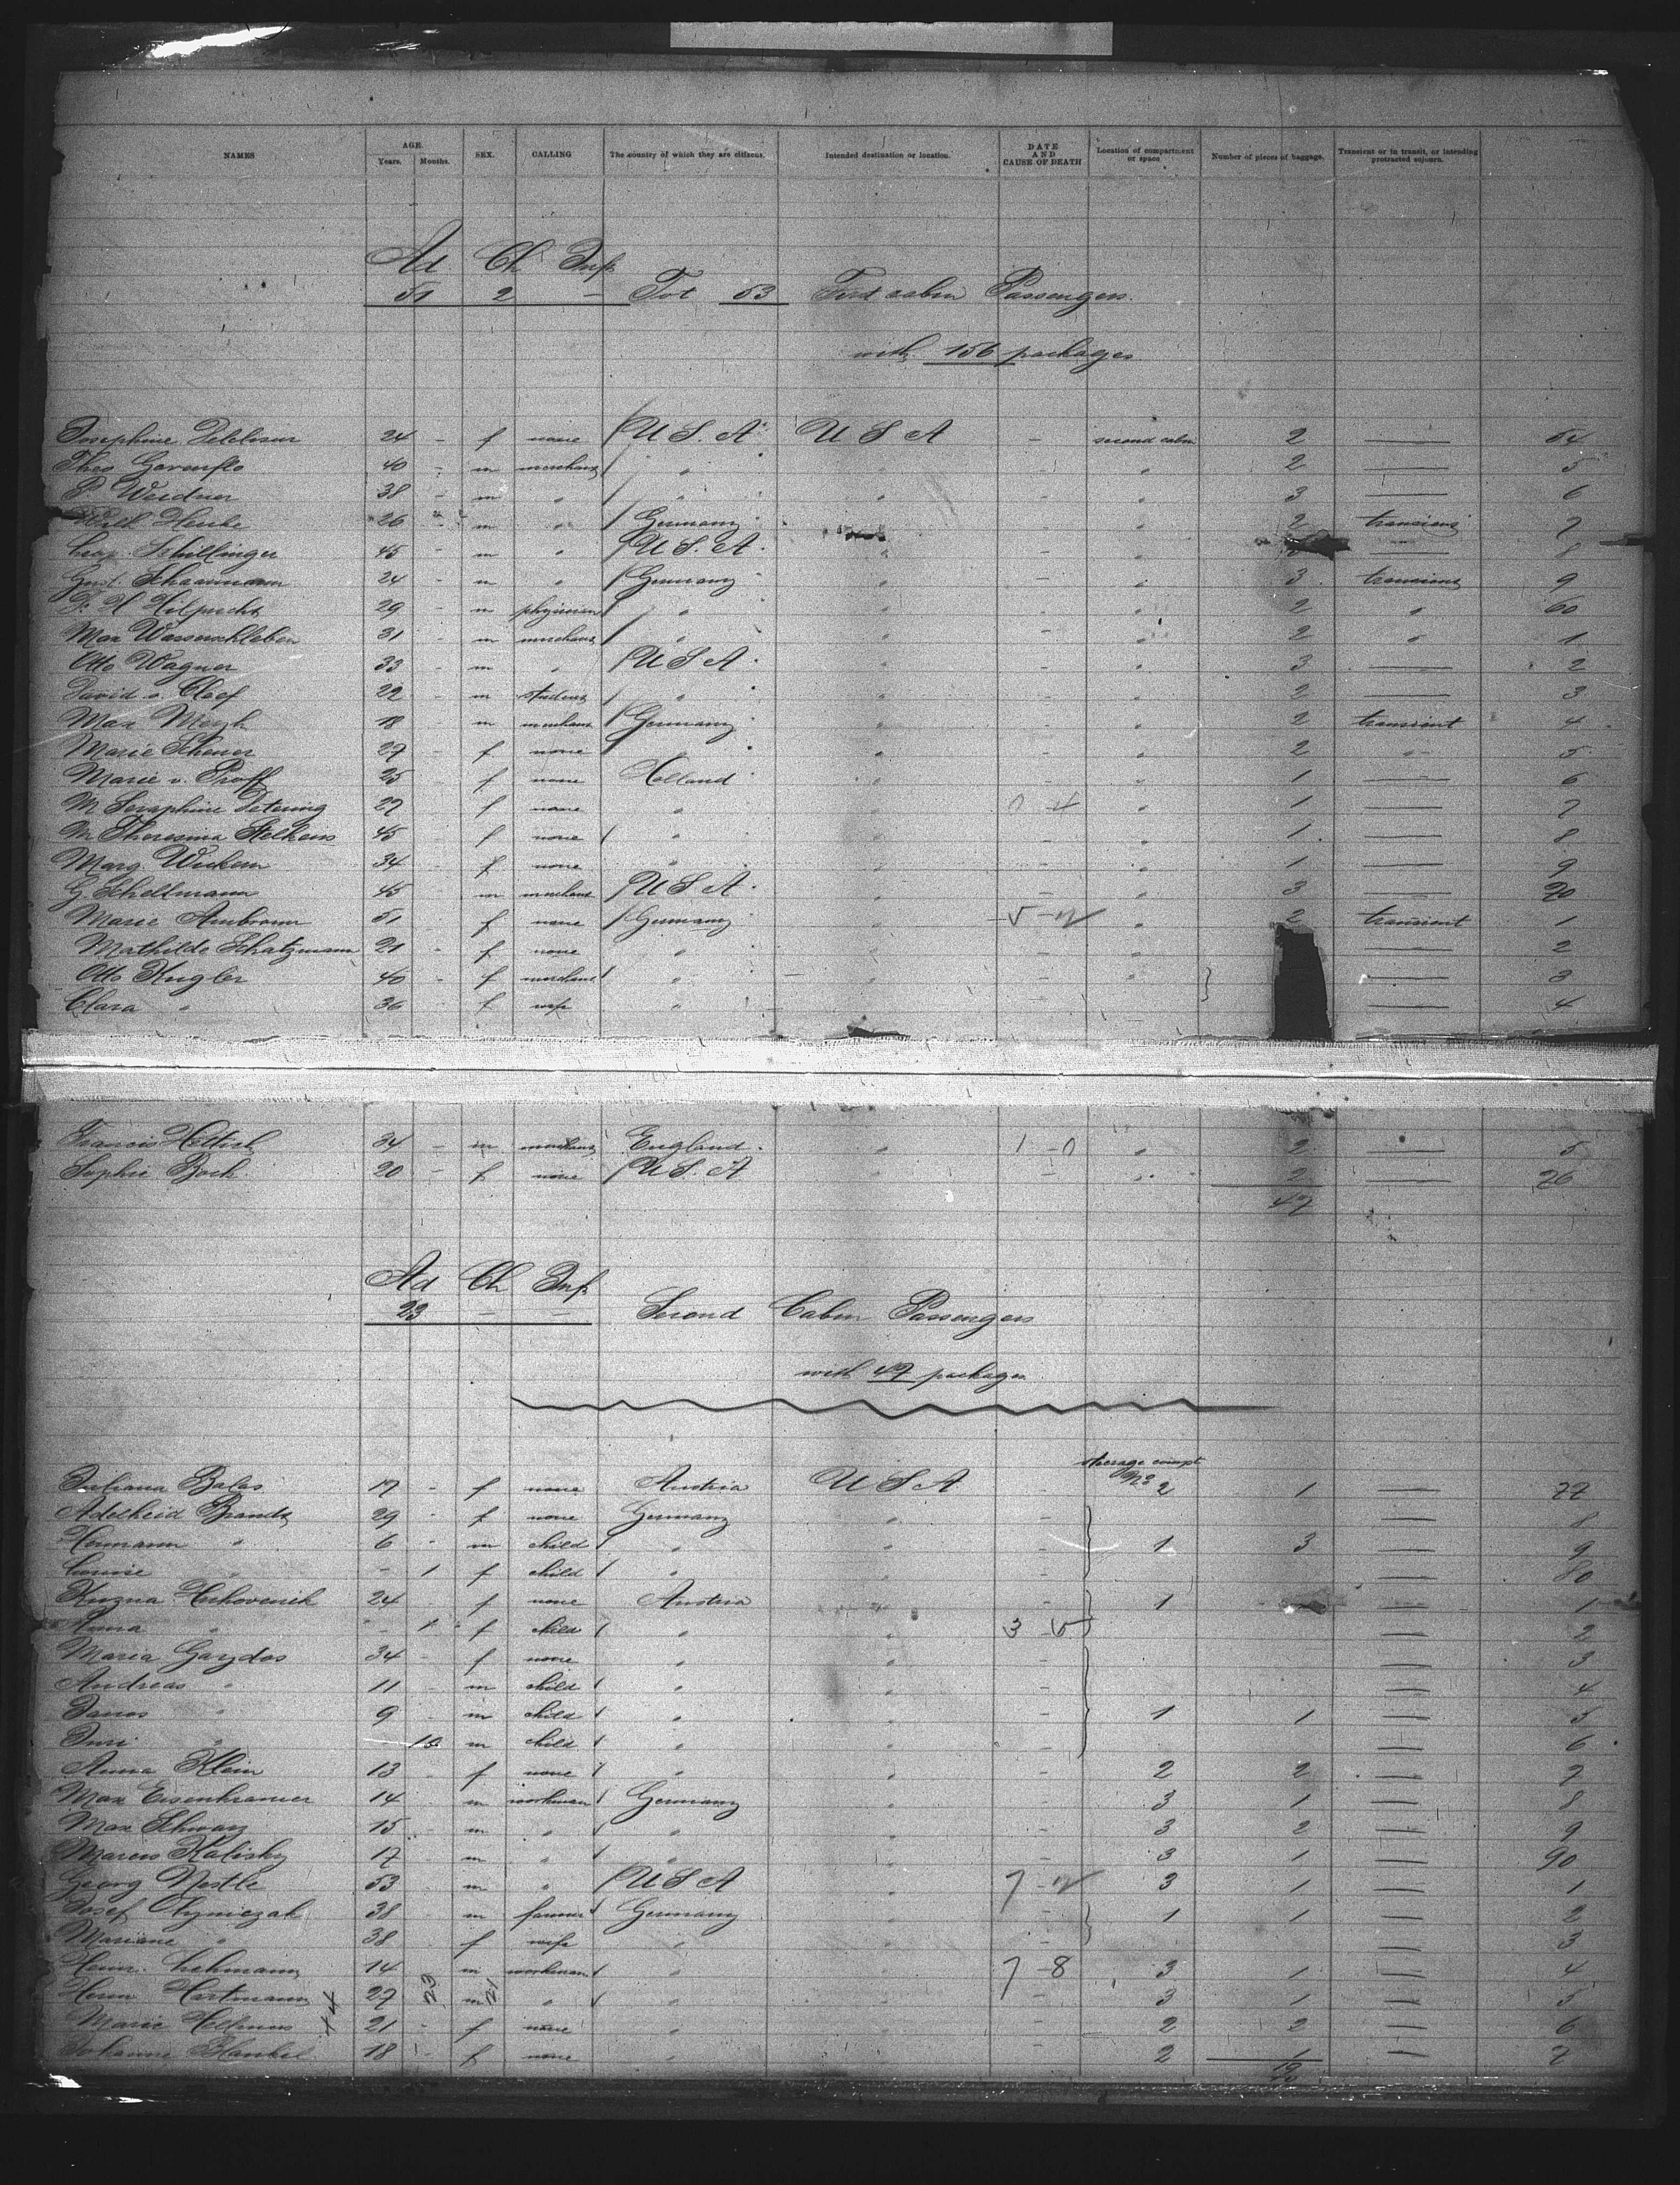 NAMES AGE. Years. Months. SEX. CALLING The country of which they are citizens. Intended destination or location. DATE AND CAUSE OF DEATH Location of compartment or space Number of pieces of baggage. Transient or in transit, or intending protracted sojourn.
Ad Ch Inf
51 2 – Tot 53 First cabin Passengers.
with 156 packages
Josephine 24 – f none U S. A. U S A – second cabin 2 — 54
Theo Gorenflo 40 – m merchant " 2 — 5
P. Weidner 38 – m " " " – " 3 — 6
Wilh Henke 26 m " Germany 2 transient 7
Leop. Schillinger 45 – m " U S. A. " – " — 8
Gust. Schaarmann 24 – m " Germany " – " 3 transient 9
Dr H Hilprecht 29 – m physician " " – " 2 " 60
Max Wasserschleben 31 – m merchant " " – " 2 " 1
Otto Wagner 33 – m " U S A. " – " 3 — 2
David v. Cleef 22 – m student " " – " 2 — 3
Max 18 – m merchant Germany " – " 2 transient 4
Marie Scheuer 27 – f none " " – " 2 " 5
Marie v. Proff 25 – f none Holland " – " 1 — 6
M Seraphine Detering 27 f none " " 0 – 4 " 1 — 7
M Theresina Stelkens 45 – f none " " – " 1 — 8
Marg. 34 – f none " " – " 1 — 9
G. Scheltmann 45 m merchant U S A. " – " 3 — 70
Marie 51 f none Germany " – " 2 transient 1
Mathilde Schatzmann 21 – f none " " – " — 2
Otto Kugler 40 – f merchant " " – " — 3
Clara " 36 – f wife " – — 4
Francis Hettich 34 – m merchant England. " 1 – 0 " 2 — 5
Sophie Bock 20 – f none U S. A – " 2 — 76
47
Ad Ch Inf
23 – – Second Cabin Passengers
with 47 packages
steerage compt
Juliana Balas 17 – f none Austria U S A – No 2 1 — 77
Adelheid Brandt 29 – f none Germany " – — 8
Hermann " 6 – m child " " – 1 3 — 9
Louise " – 1 f child " – — 80
24 – f none Austria " – 1 — 1
Anna " – 1 f child " " 3 – 5 — 2
Maria Gaydos 34 – f none " " – — 3
Andreas " 11 – m child " " – — 4
Janos " 9 – m child " " – 1 1 — 5
Juri " – 10 m child " " – — 6
Anna Klein 13 – f none " " – 2 2 — 7
Max Eisenkramer 14 – m workman Germany " – 3 1 — 8
Max Schwarz 15 – m " " " – 3 2 — 9
Marcus Kalisky 17 – m " " " – 3 1 — 90
Georg Nestle 53 m " U S A " 3 1 — 1
Josef 38 – m farmer Germany " – 1 1 — 2
Mariane " 38 f wife " " – — 3
Heinr. Lehmann 14 m workman " " 7 – 8 3 1 — 4
Herm Hartmann 44 27 23 m 21 " " " – 3 1 — 5
Marie 21 – f none " " – 2 2 — 6
Johanne 18 – f none " " – 2 1 — 7